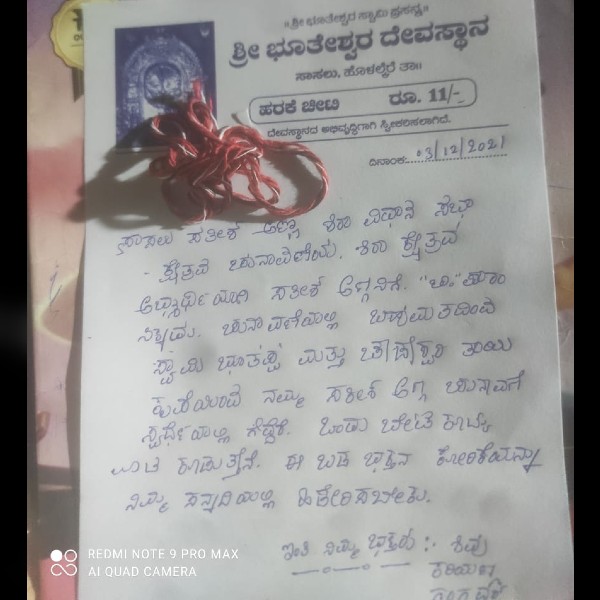 ॥ಶ್ರೀ ಭೂತೇಶ್ವರ ಸ್ವಾಮಿ ಪ್ರಸನ್ನ॥
ಶ್ರೀ ಭೂತೇಶ್ವರ ದೇವಸ್ಥಾನ
ಸಾಸಲು, ಹೊಳಲ್ಕೆರೆ ತಾ॥
ಹರಕೆ ಚೀಟಿ ರೂ. 11/-
ದೇವಸ್ಥಾನದ ಅಭಿವೃದ್ಧಿಗಾಗಿ ಸ್ವೀಕರಿಸಲಾಗಿದೆ.
ದಿನಾಂಕ: 03/12/2021
ಸಾಸಲು ಸತೀಶ ಅಣ್ಣ ಶಿರಾ ವಿಧಾನ ಸಭಾ
- ಕ್ಷೇತ್ರದ ಚುನಾವಣೆಯ. ಶಿರಾ ಕ್ಷೇತ್ರದ
ಅಭ್ಯರ್ಥಿಯಾಗಿ ಸತೀಶ್ ಅಣ್ಣನಿಗೆ. "ಬಿ"ಫಾರಂ
ಚುನಾವಣೆಯಲ್ಲಿ ಬಹುಮತದಿಂದ
ಸ್ವಾಮಿ ಭೂತಪ್ಪ ಮತ್ತು ತಾಯಿ
ನಮ್ಮ ಸತೀಶ್ ಅಣ್ಣ ಚುನಾವಣೆ
ಸ್ಪರ್ಧೆಯಲ್ಲಿ ಗೆದ್ದರೆ. ಒಂದು
ಊಟ ಈ ಬಡ ಭಕ್ತನ ಕೋರಿಕೆಯನ್ನು
ನಿಮ್ಮ ಸನ್ನಿಧಿಯಲ್ಲಿ
ಇಂತಿ ನಿಮ್ಮ ಭಕ್ತರು :- ಶಿವು
REDMI NOTE 9 PRO MAX
AI QUAD CAMERA